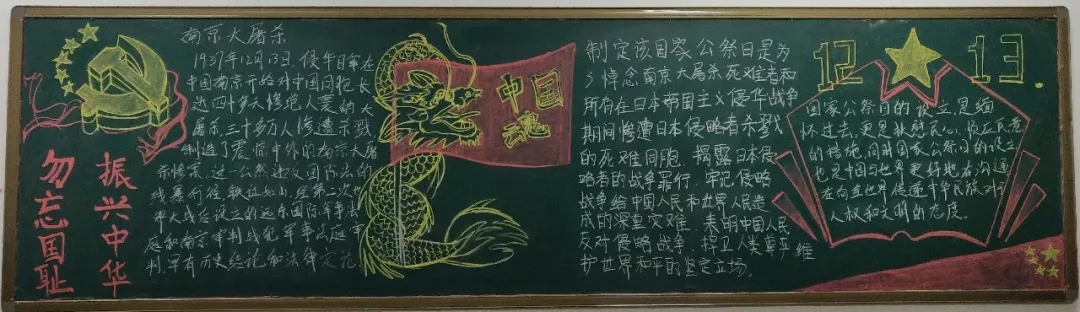 勿忘国耻
振兴中华
南京大屠杀
1937年12月13日,侵华日军在
中国南京开始对中国同胞长
达四十多天惨绝人寰的大
屠杀三十多万人惨遭杀戮
制造了震惊中外的南京大屠
杀惨案,这一公然违反国际法的
残暴行径,铁证如山,经第二次世
界大战后设立的远东国际军事法
庭和南京审判战犯军事法庭审
判,早有历史结论和法律定论
中国
魂
制定该国家公祭日是为
了悼念南京大屠杀死难者和
所有在日本帝国主义侵华战争
期间惨遭日本侵略者杀戮
的死难同胞,揭露日本侵
略者的战争罪行,牢记侵略
战争给中国人民和世界人民造
成的深重灾难,表明中国人民
反对侵略战争、捍卫人类尊严、维
护世界和平的坚定立场。
12 13
国家公祭日的设立,是缅
怀过去,更是抚慰民心、顺应民意
的措施,同时国家公祭日的设立
也是中国与世界更好地在沟通
在向这世界传递中华民族对于
人权和文明的态度。